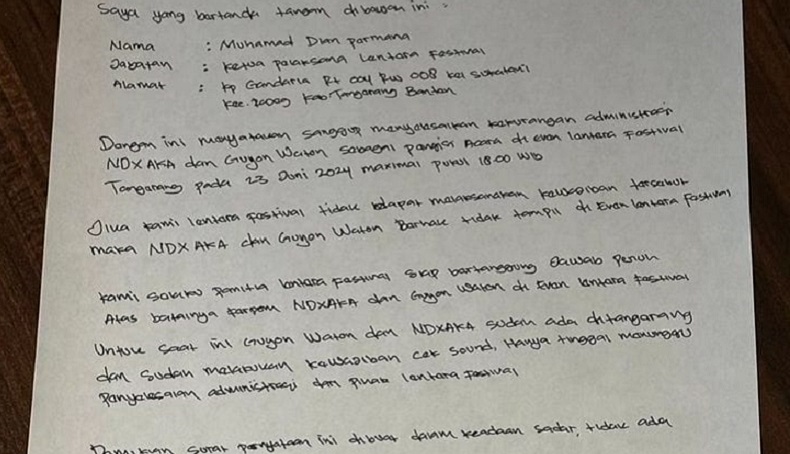 Saya yang bertanda tangan dibawah ini :
Nama : Muhamad Dian permana
Jabatan : Ketua pelaksana Lentara Festival
Alamat : Kp Gandaria Rt 004 Rw 008 kel
Kec. Kab. Tangerang Banten
Dengan ini menyatakan sanggup menyelesaikan kekurangan administrasi
NDXAKA dan Guyon Waton sebagai pengisi Acara di Even lentara Festival
Tangerang pada 23 Juni 2024 maximal pukul 18.00 WIB
Jika kami lentara festival tidak dapat melaksanakan kewajiban tersebut
maka NDX AKA dan Guyon Waton Berhak tidak tampil di Even lentara Festival
Kami selaku panitia lentara Festival siap bertanggung Jawab penuh
Atas batalnya perform NDXAKA dan Guyon Waton di Even lentara Festival
Untuk saat ini Guyon Waton dan NDXAKA sudah ada ditangerang
dan sudah melakukan kewajiban cek sound, Hanya tinggal menunggu
Penyelesaian administrasi dari pihak lentara Festival
Demikian surat pernyataan ini dibuat dalam keadaan sadar, tidak ada